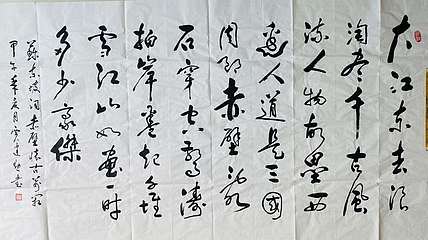 大江东去浪
淘尽千古风
流人物故垒西
边人道是三國
周郎赤壁乱
石穿空驚濤
拍岸卷起千堆
雪江山如画一时
多少豪傑
蘇东坡词赤壁怀古
甲午年亥月